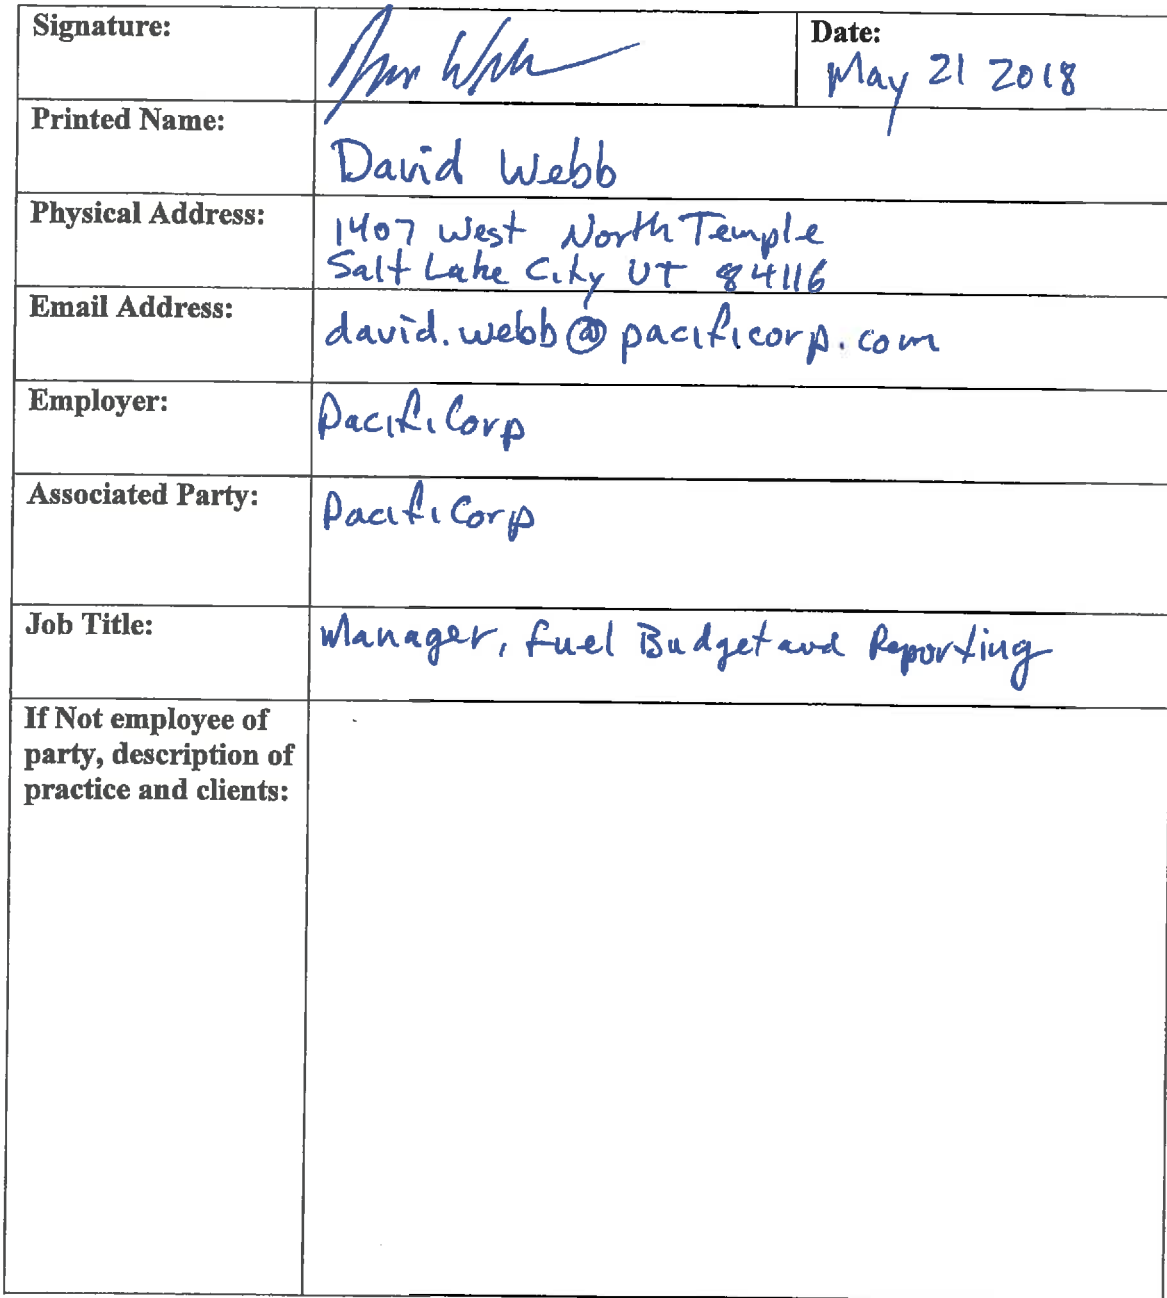 Signature:
Date:
May 21 2018
Printed Name:
David Webb
Physical Address:
1407 West North Temple
Salt Lake City UT 84116
Email Address:
david.webb@pacificorp.com
Employer:
PacifiCorp
Associated Party:
PacifiCorp
Job Title:
Manager, Fuel Budget and Reporting
If Not employee of
party, description of
practice and clients: